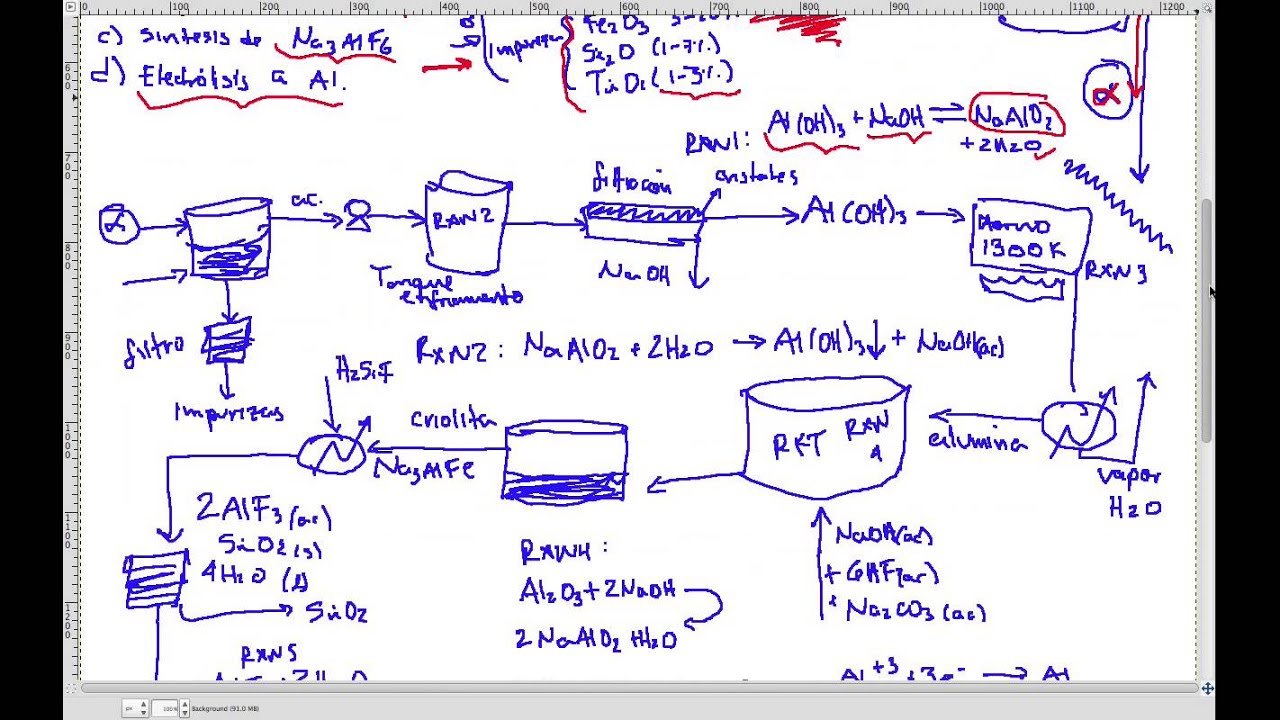 0 100 200 300 400 500 600 700 800 900 1000 1100 1200
c) Síntesis de Na3AlF6
d) Electrólisis a Al.
impurezas
Fe2O3
Si2O (1-7%)
TiO2 (1-3%)
α
RXN1: Al(OH)3 + NaOH ⇌ NaAlO2
+ 2H2O
α
ac.
RXN2
Tanque
enfriamiento
filtración
cristales
NaOH
Al(OH)3
Horno
1300K
RXN3
filtro
impurezas
RXN2: NaAlO2 + 2H2O → Al(OH)3↓ + NaOH(ac)
H2SiF
criolita
Na3AlF6
RKT RXN
4
alumina
vapor
H2O
2AlF3(ac)
SiO2(s)
4H2O (l)
SiO2
RXN4:
Al2O3 + 2NaOH
2NaAlO2 + H2O
NaOH(ac)
+ 6HF(ac)
+ Na2CO3(ac)
RXN5
Al+3 + 3e- → Al
px 100% Background (91.0 MB)